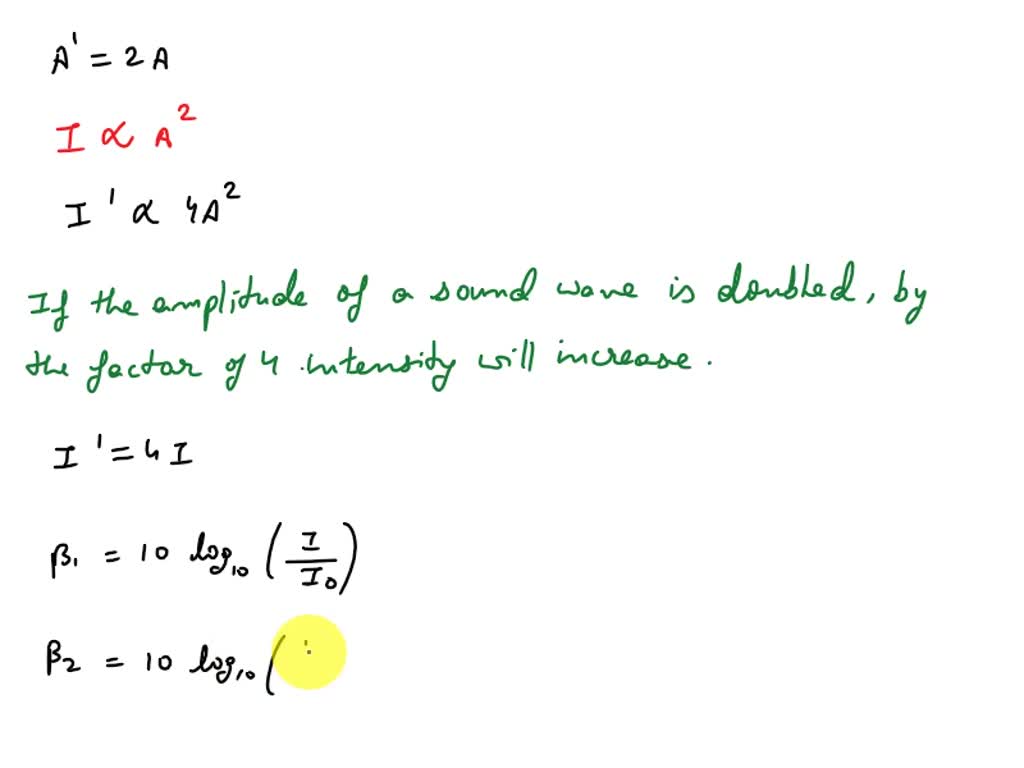 A' = 2A
I ∝ A²
I' ∝ 4A²
If the amplitude of a sound wave is doubled, by
the factor of 4 intensity will increase.
I' = 4I
β₁ = 10 log₁₀ (I/I₀)
β₂ = 10 log₁₀ (